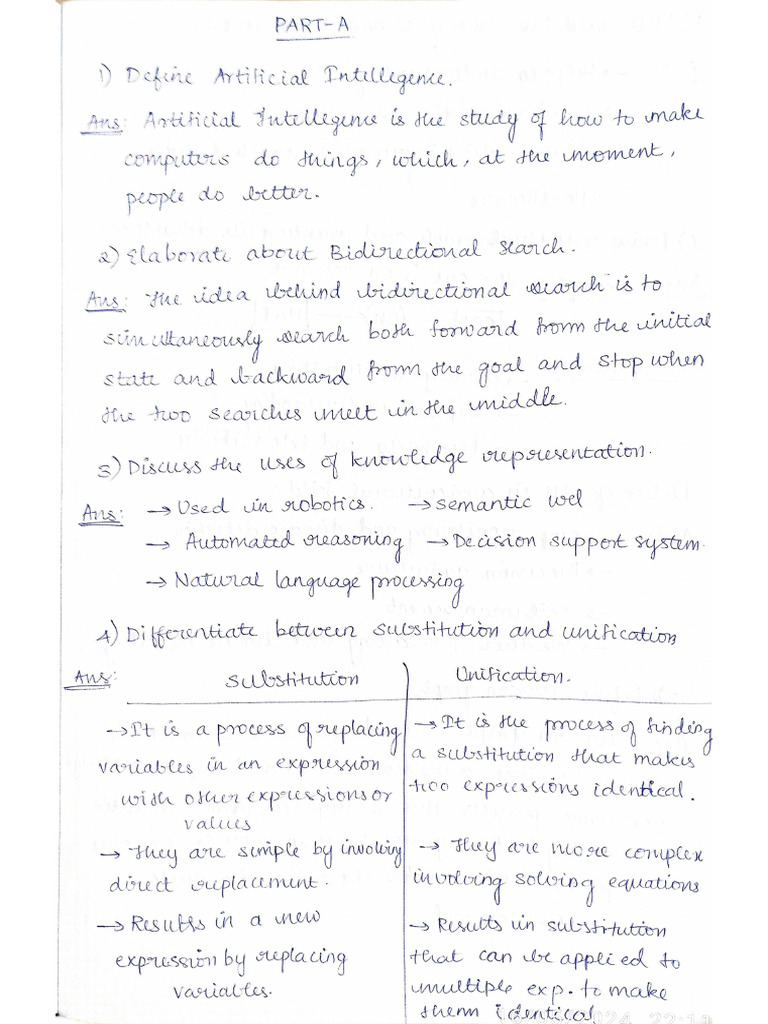 PART-A
1) Define Artificial Intellegence.
Ans: Artificial Intellegence is the study of how to make
computers do things, which, at the moment,
people do better.
2) Elaborate about Bidirectional Search.
Ans: The idea behind bidirectional search is to
simultaneously search both forward from the initial
state and backward from the goal and stop when
the two searches meet in the middle.
3) Discuss the uses of knowledge representation.
Ans: → Used in robotics. → semantic web
→ Automated reasoning → Decision support system.
→ Natural language processing
4) Differentiate between substitution and unification
Ans: Substitution Unification.
→ It is a process of replacing
variables in an expression
with other expressions or
values
→ They are simple by involving
direct replacement.
→ Results in a new
expression by replacing
variables.
→ It is the process of finding
a substitution that makes
two expressions identical.
→ They are more complex
involving solving equations
→ Results in substitution
that can be applied to
multiple exp. to make
them identical